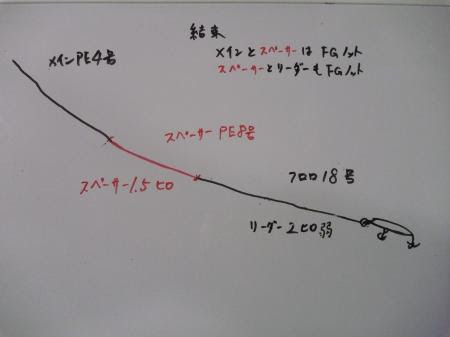 結束
メインとスペーサーはFGノット
スペーサーとリーダーもFGノット
メインPE4号
スペーサー PE8号
スペーサー1.5ヒロ
フロロ18号
リーダー2ヒロ弱